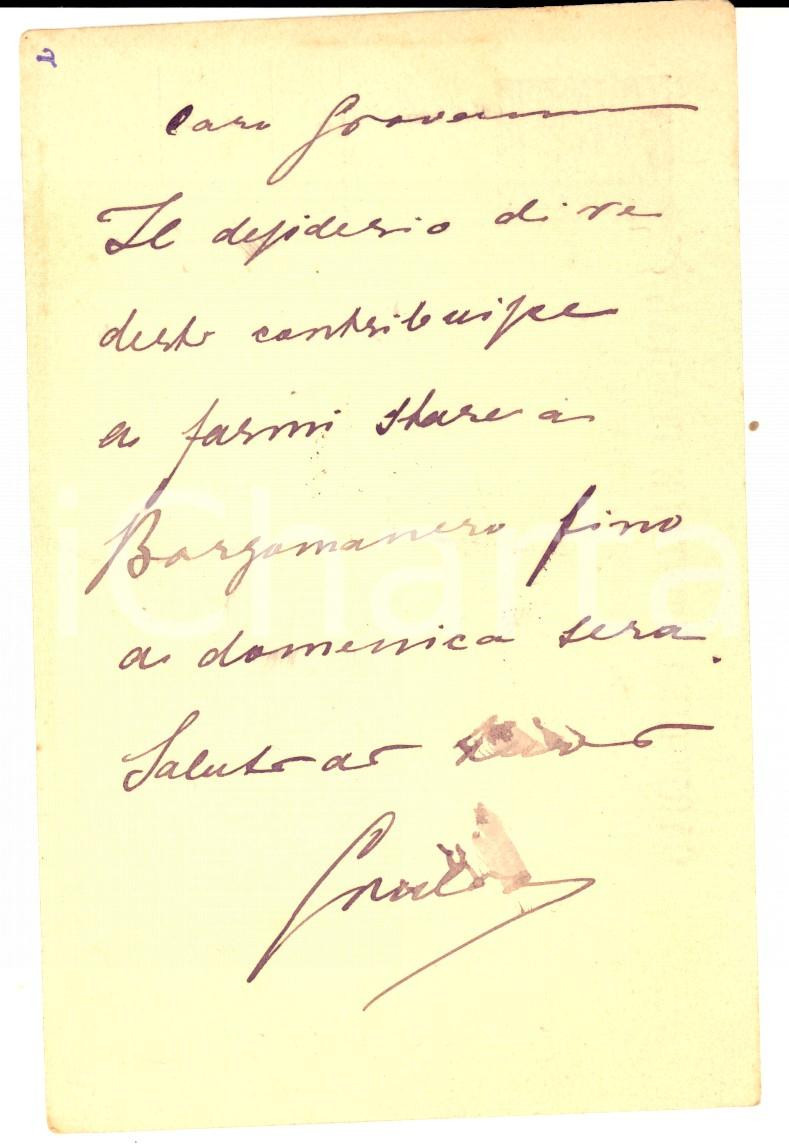 Caro Giovanni
Il desiderio di ve
derti contribuisce
a farmi stare a
Borgomanero fino
a domenica sera.
Saluti ai
iCharta